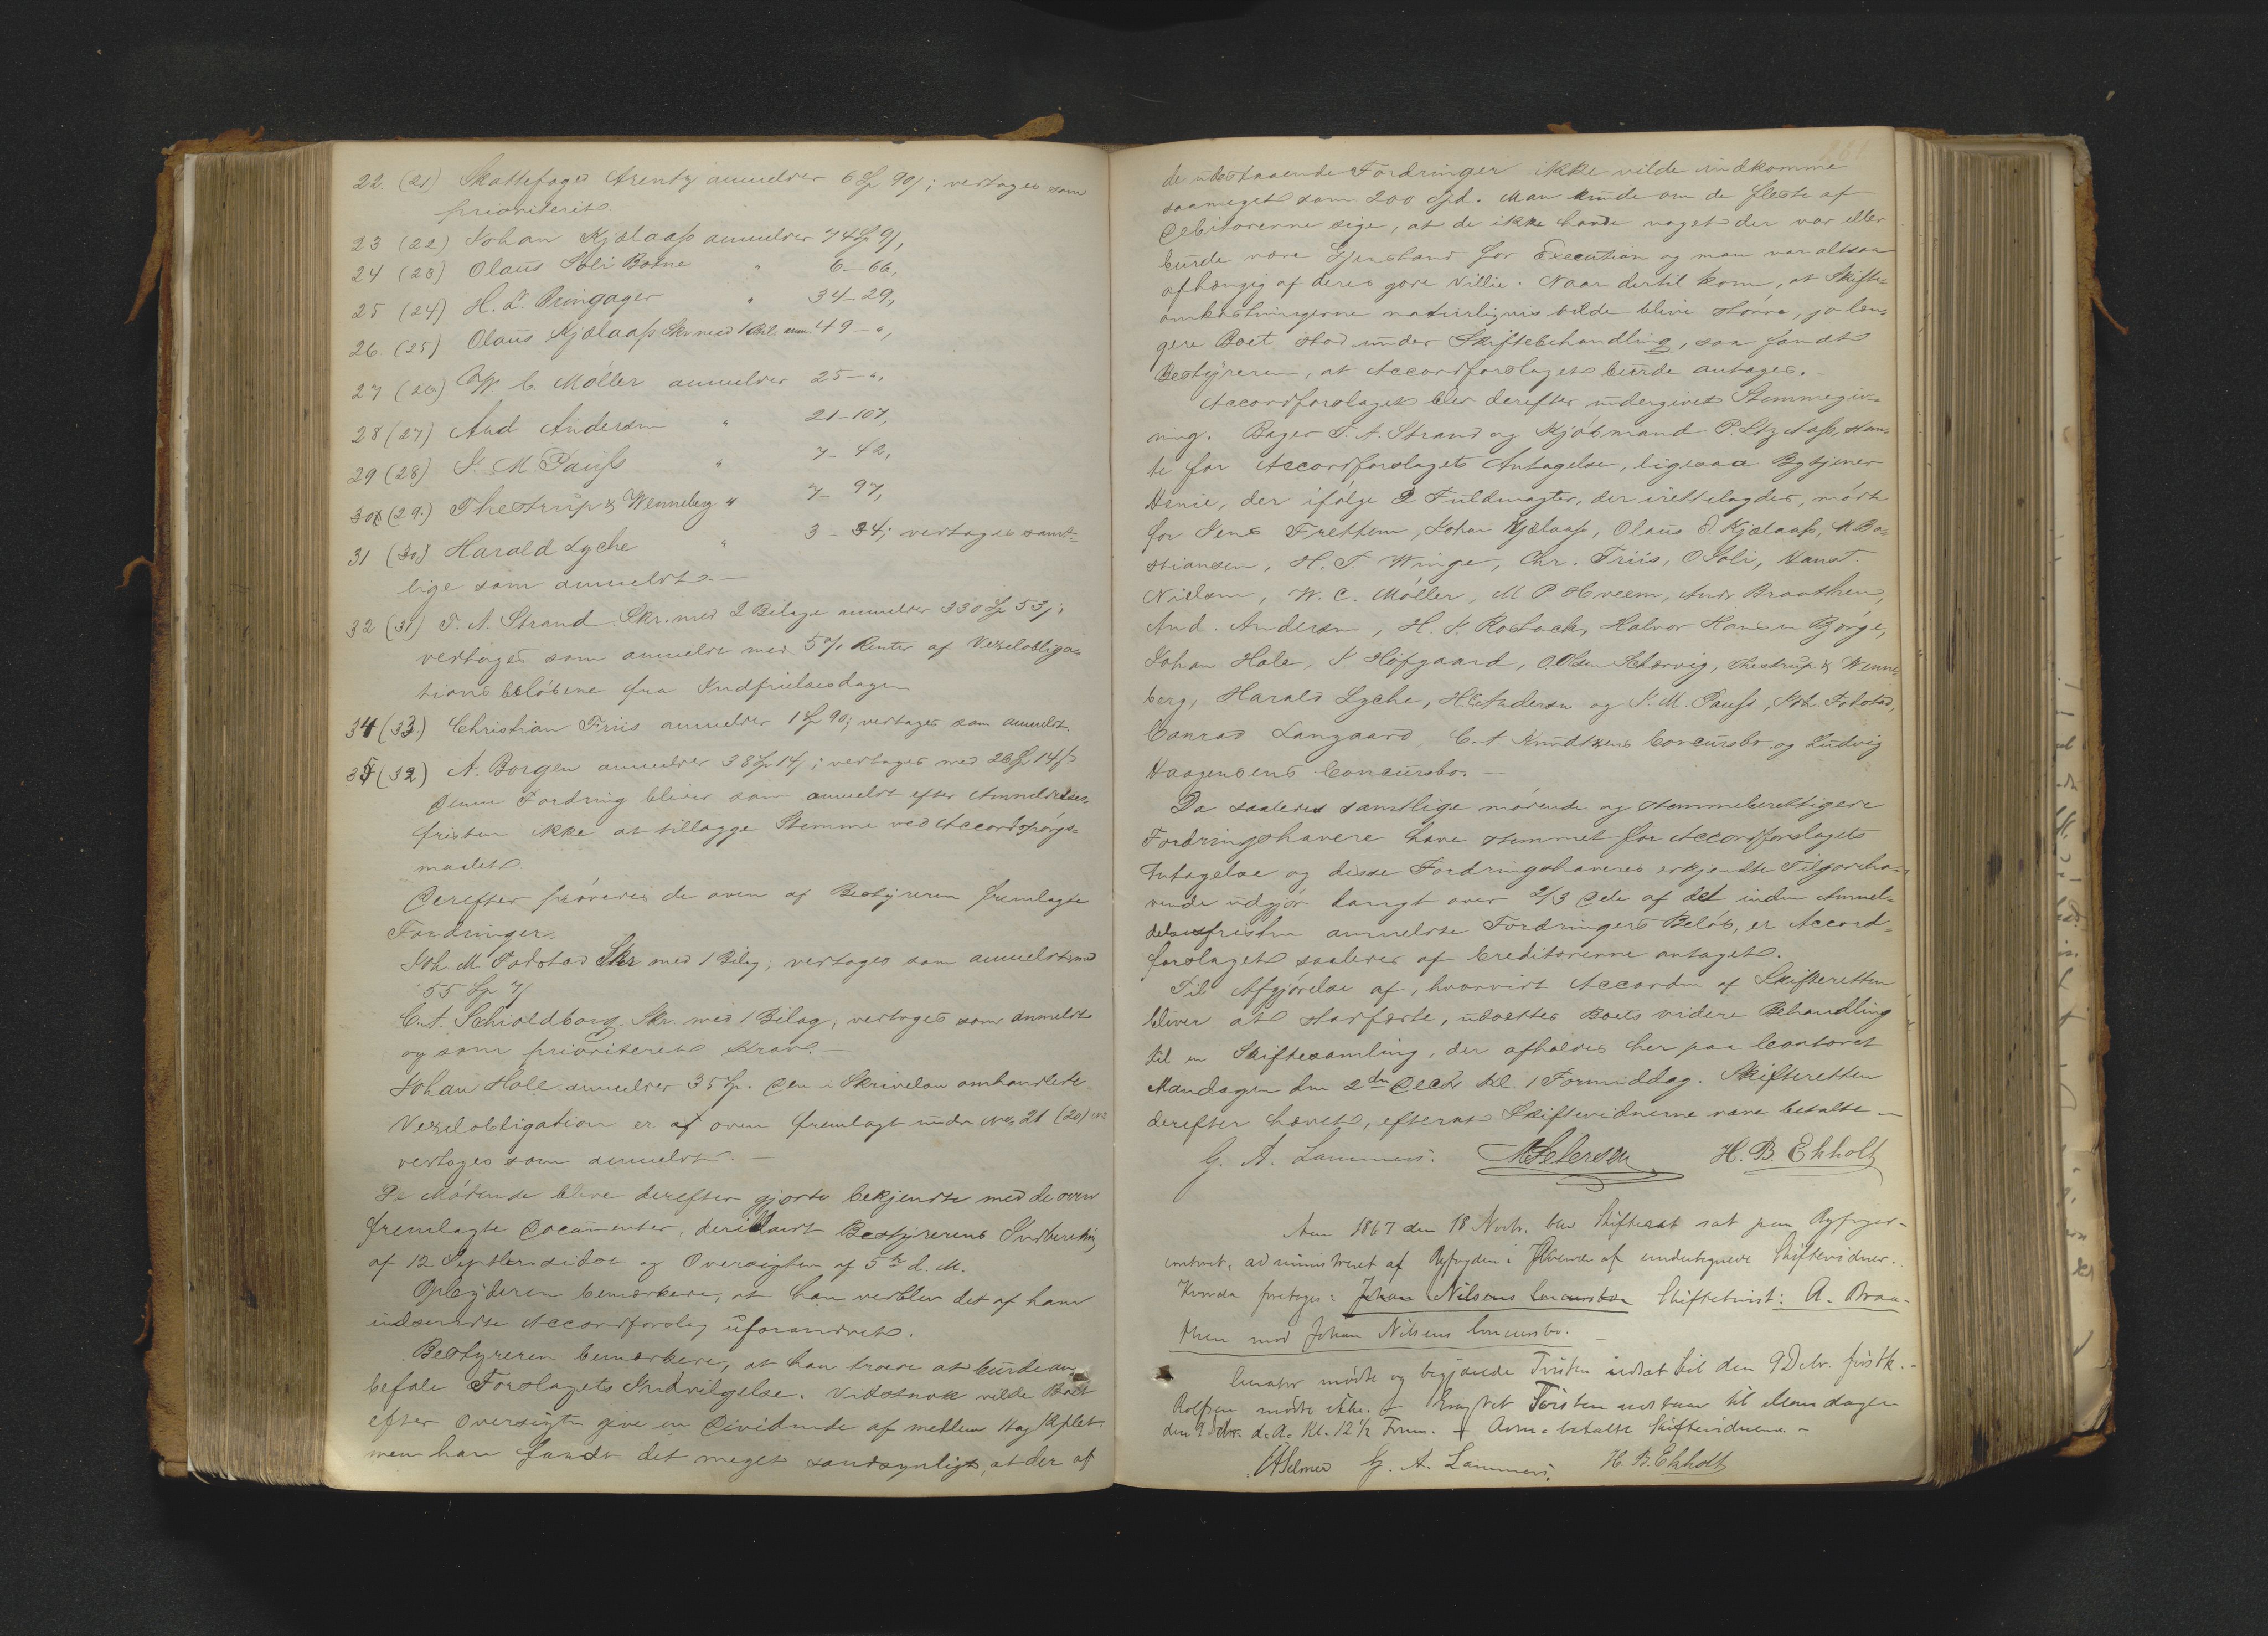 22. (21) Skattefoged Arentz anmelder 6 Sp 90 /; vedtages som
prioriteret.
23 (22) Johan Kjølaass anmelder 74 Sp 9 /,
24 (23) Olaus Soli Borne " 6 - 66,
25 (24) H. L. Bringager " 34 - 29,
26. (25) Olaus Kjølaass Skr med 1 Bil. anm. 49 - ",
27 (26) W. C. Møller anmelder 25 - ",
28 (27) And Andersen " 21 - 107,
29 (28) J. M. Pauss " 7 - 42,
30 (29.) Thestrup & Wenneberg " 7 - 97,
31 (30.) Harald Lyche " 3 - 34; vedtages samt-
lige som anmeldt. —
32 (31) T. A. Strand. Skr. med 2 Bilage anmelder 330 Sp 53 /;
vedtages som anmeldt med 5 % Renter af Vexelobliga-
tionsbeløbene fra Indfrielsesdagen
34 (33.) Christian Friis anmelder 1 Sp 90; vedtages som anmeldt.
35 (32) A. Borgen anmelder 38 Sp 14 /; vedtages med 26 Sp 14 /
Denne Fordring bliver som anmeldt efter Anmeldelses-
fristen ikke at tillægge Stemme ved Accordspørgs-
maalet.
Derefter prøvedes de oven af Bestyreren fremlagte
Fordringer.
Joh. M. Fodstad Skr med 1 Bilag; vedtages som anmeldt med
55 Sp 7 /
C. A. Schioldborg. Skr. med 1 Bilag; vedtages som anmeldt
og som prioriteret Krav. —
Johan Hole anmelder 35 Sp. Den i Skrivelsen omhandlede
Vexelobligation er af oven fremlagt under No 21 (20)
vedtages som anmeldt. —
De Mødende bleve derefter gjorte bekjendte med de oven
fremlagte Documenter, deriblandt Bestyrerens Indberetning
af 12 Septbr. sidst og Oversigten af 5te d. M.
Opbyderen bemærkede, at han vedblev det af ham
indsendte Accordforslag uforandret.
Bestyreren bemærkede, at han troede at burde an-
befale Forslagets Indvilgelse. Vidstnok vilde Boet
efter Oversigten give en Dividende af mellem
men han fandt det meget sandsynligt, at der af
de udestaaende Fordringer ikke vilde indkomme
saameget som 200 Spd. Man kunde om de fleste af
Debitorerne sige, at de ikke havde noget der var eller
burde være Gjenstand for Execution og man var altsaa
afhængig af deres gode Villie. Naar dertil kom, at Skifte-
omkostningerne naturligvis vilde blive større, jo læn-
gere Boet stod under Skiftebehandling, saa fandt
Bestyreren, at Accordforslaget burde antages. —
Accordforslaget blev derefter undergivet Stemmegiv-
ning. Bager T. A. Strand og Kjøbmand P. Ltz Aass, stem-
te for Accordforslagets Antagelse, ligesaa Bytjener
Henie, der ifølge 2 Fuldmagter, der irettelagdes, mødte
for Jens Frettem, Johan Kjølaass, Olaus d. Kjølaass, M Ba-
stiansen, H. T Winge, Chr. Friis, O Soli, Hanst.
Nielsen, W. C. Møller, M P Hveem, Andr Braathen,
And. Andersen, H. J. Rostock, Halvor Hansen Bjørge,
Johan Hole, J Høfgaard, O. Olsen Schervig, Thestrup & Wenne-
berg, Harald Lyche, H C Andersen og J. M. Pauss, Joh Fodstad,
Conrad Langaard, C. A. Knudtzens Concursbo og Ludvig
Haagensens Concursbo. —
Da saaledes samtlige mødende og stemmeberettigede
Fordringshavere have stemmet for Accordforslagets
Antagelse og disse Fordringshaveres erkjendte Tilgodeha-
vende udgjør langt over 2/3 Dele af det inden Anmel-
delsesfristen anmeldte Fordringers Beløb, er Accord-
forslaget saaledes af Creditorerne antaget.
Til Afgjørelse af, hvorvidt Accorden af Skifteretten
bliver at stadfæste, udsættes Boets videre Behandling
til en Skiftesamling, der afholdes her paa Contoret
Mandagen den 2den Decbr Kl. 1 Formiddag. Skifteretten
derefter hævet, efterat Skiftevidnerne vare betalte. —
G. A. Lammers. M Petersen H. B. Ekholt
Aar 1867 den 18 Novbr. blev Skifteret sat paa Byfoged-
contoret, administreret af Byfogden i Overvær af undertegnede Skiftevidner.
Hvorda foretoges: Johan Nilsens Concursbo Skiftetvist: A. Braa-
then mod Johan Nilsens Concursbo. —
Curator mødte og begjærede Tvisten udsat til den 9 Decbr. førstk. —
Rolfsen mødte ikke. — Eragtet Tvisten udstaar til Mandagen
den 9 Decbr. d. A. Kl. 12 1/2 Form. — betalte Skiftevidnerne. —
Selmer G. A. Lammers. H. B. Ekholt